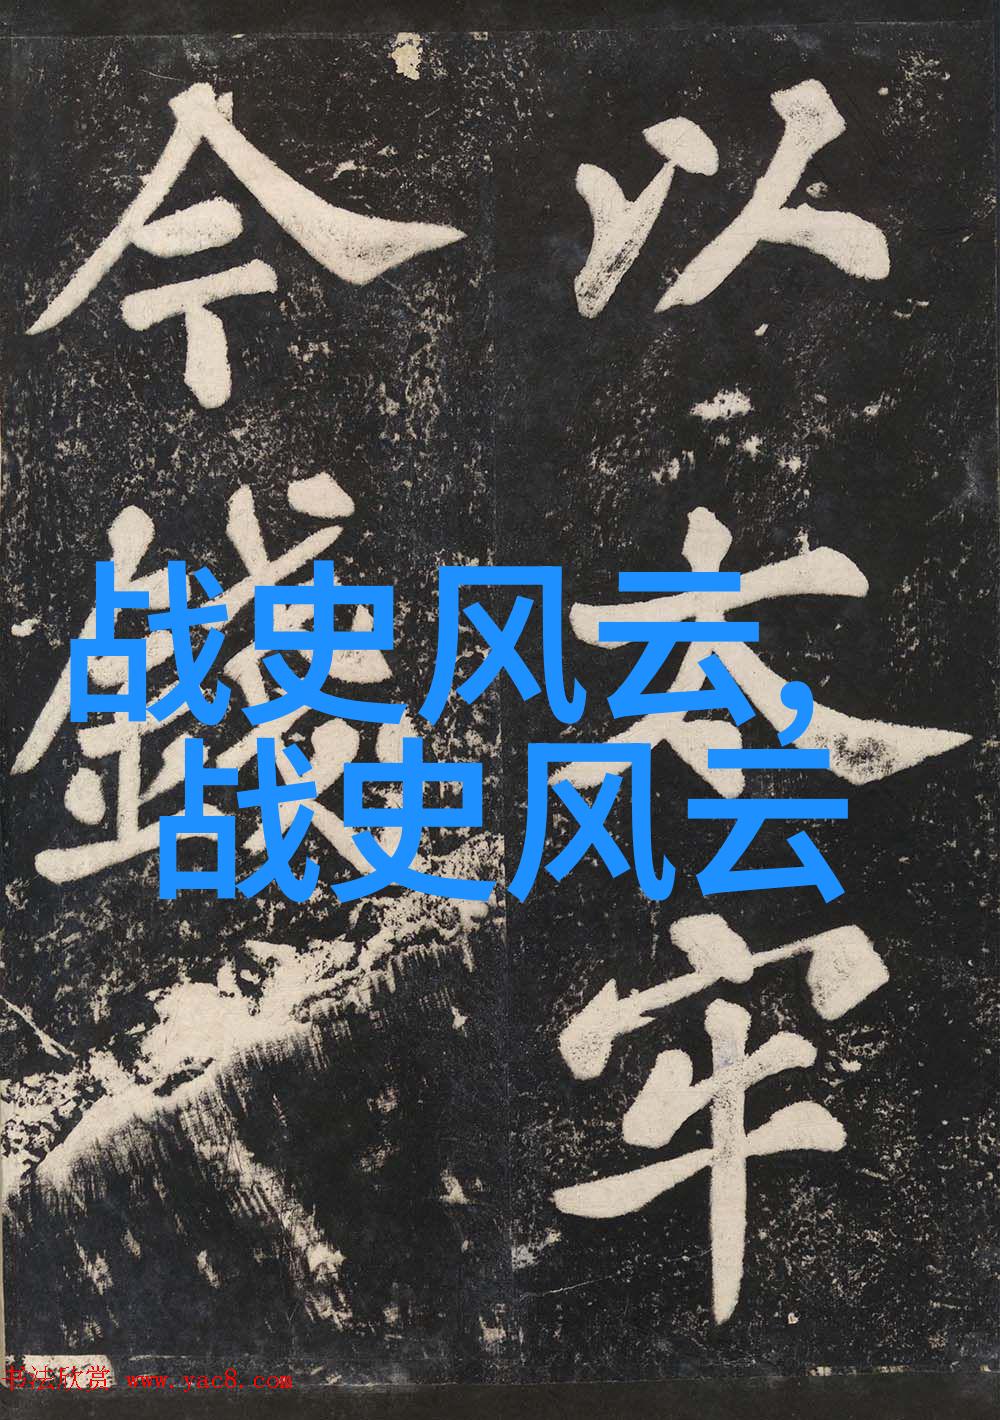 以太牢
今錢
战史风云,
战史风云
书法欣赏 www.yac8.com